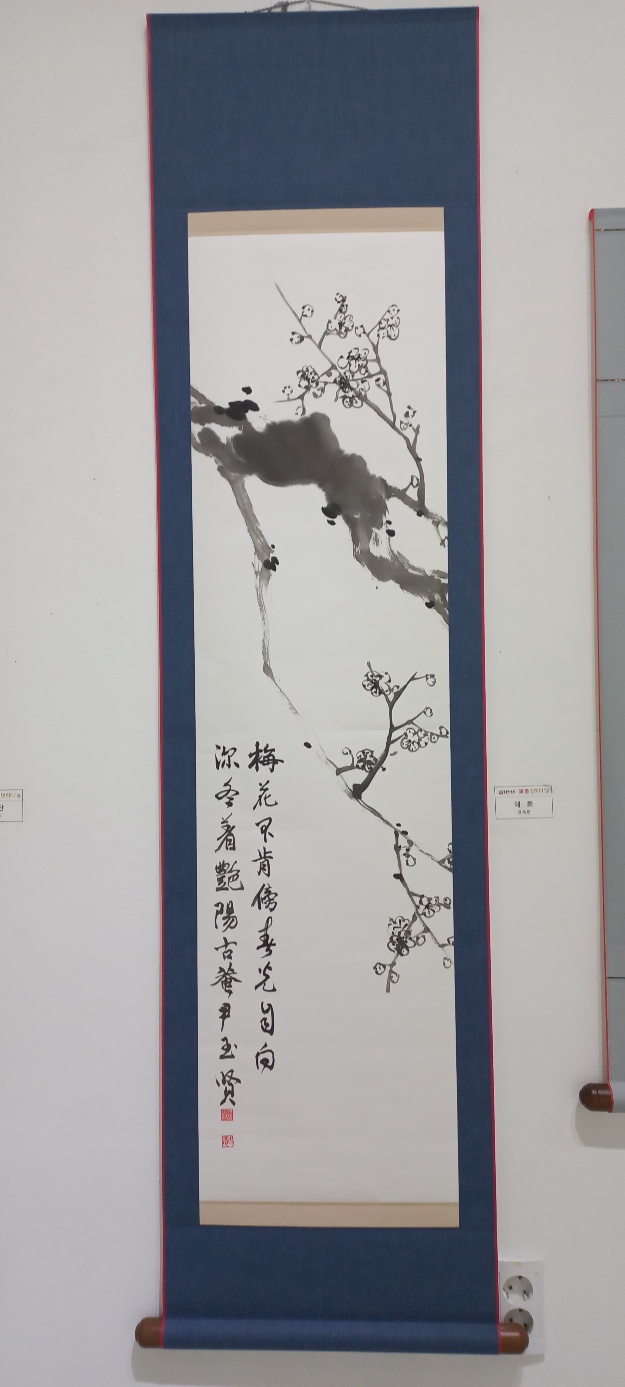 梅花不肯傍春光自向
深冬着艷陽古菴尹玉賢